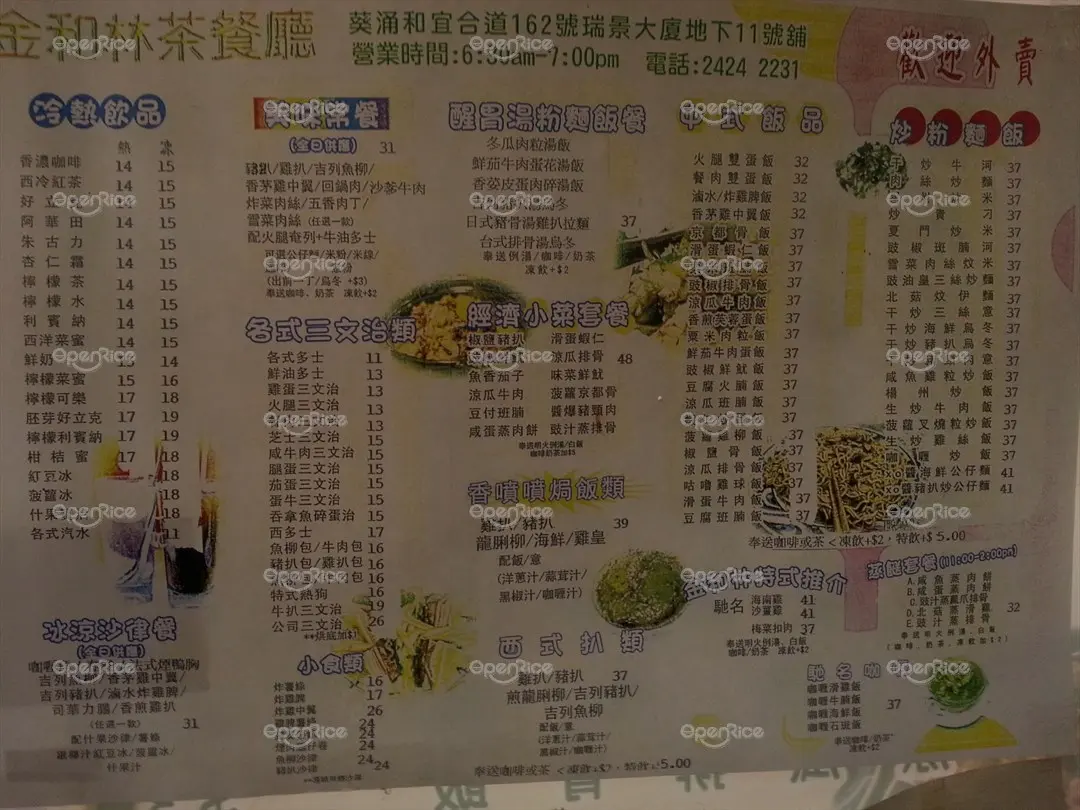 金和林茶餐廳
葵涌和宜合道162號瑞景大廈地下11號舖
營業時間:6:30am-7:00pm 電話:2424 2231
歡迎外賣
冷熱飲品
熱 凍
香濃咖啡 14 15
西冷紅茶 14 15
好立 14 15
阿華田 14 15
朱古力 14 15
杏仁霜 14 15
檸檬茶 14 15
檸檬水 14 15
利賓納 14 15
西洋菜蜜 14 15
鮮奶 13 14
檸檬菜蜜 15 16
檸檬可樂 17 18
胚芽好立克 17 19
檸檬利賓納 17 19
柑桔蜜 17 18
紅豆冰 18
菠蘿冰 18
什果 18
各式汽水 11
冰涼沙律餐
(全日供應)
吉列魚柳/香茅雞中翼/
吉列豬扒/滷水炸雞脾/
司華力腸/香煎雞扒
(任選一款) 31
配什果沙律/薯絲
什果汁
美味常餐
(全日供應) 31
豬扒/雞扒/吉列魚柳/
香茅雞中翼/回鍋肉/沙爹牛肉
炸菜肉絲/五香肉丁/
雪菜肉絲(任選一款)
配火腿奄列+牛油多士
可選公仔麵/米粉/米線/
(出前一丁/烏冬 +$3)
奉送咖啡、奶茶 凍飲+$2
各式三文治類
各式多士 11
鮮油多士 13
雞蛋三文治 13
火腿三文治 13
芝士三文治 15
咸牛肉三文治 15
腿蛋三文治 15
茄蛋三文治 15
蛋牛三文治 15
吞拿魚碎蛋治 15
西多士 17
魚柳包/牛肉包 16
豬扒包/雞扒包 16
包 16
特式熱狗 16
牛扒三文治 19
公司三文治 26
**烘底加$1
小食類
炸薯絲 16
炸雞脾 17
炸雞中翼 26
24
24
魚柳沙律 24
豬扒沙律 24
醒胃湯粉麵飯餐
冬瓜肉粒湯飯
鮮茄牛肉蛋花湯飯
香荽皮蛋肉碎湯飯
烏冬
日式豬骨湯雞扒拉麵 37
台式排骨湯烏冬
奉送例湯/咖啡/奶茶
凍飲+$2
經濟小菜套餐
椒鹽豬扒 滑蛋蝦仁
涼瓜排骨 48
魚香茄子 味菜鮮魷
涼瓜牛肉 菠蘿京都骨
豆付班腩 醬爆豬頸肉
咸蛋蒸肉餅 豉汁蒸排骨
奉送明火例湯/白飯
咖啡奶茶加$5
香噴噴焗飯類
雞扒/豬扒 39
龍脷柳/海鮮/雞皇
配飯/意
(洋蔥汁/蒜茸汁/
黑椒汁/咖喱汁)
西式扒類
雞扒/豬扒 37
煎龍脷柳/吉列豬扒/
吉列魚柳
配飯/意
(洋蔥汁/蒜茸汁/
黑椒汁/咖喱汁)
奉送咖啡或茶 <凍飲+$2, 特飲+$5.00
中式飯品
火腿雙蛋飯 32
餐肉雙蛋飯 32
滷水/炸雞脾飯 32
香茅雞中翼飯 32
京都骨飯 37
滑蛋蝦仁飯 37
豉椒排骨飯 37
涼瓜牛肉飯 37
香煎芙蓉蛋飯 37
粟米肉粒飯 37
鮮茄牛肉蛋飯 37
豉椒鮮魷飯 37
豆腐火腩飯 37
涼瓜班腩飯 37
菠蘿雞柳飯 37
椒鹽骨飯 37
涼瓜排骨飯 37
咕嚕雞球飯 37
滑蛋牛肉飯 37
豆腐班腩飯 37
炒粉麵飯
干炒牛河 37
肉絲炒麵 37
米 37
炒貴刁 37
夏門炒米 37
豉椒班腩河 37
雪菜肉絲炆米 37
豉油皇三絲麵 37
北菇炆伊麵 37
干炒三絲意 37
干炒海鮮烏冬 37
干炒豬扒烏冬 37
肉意 37
咸魚雞粒炒飯 37
楊州炒飯 37
生炒牛肉飯 37
菠蘿叉燒粒炒飯 37
生炒雞絲飯 37
咖喱炒飯 37
xo醬海鮮公仔麵 41
xo醬豬扒炒公仔麵 41
奉送咖啡或茶 <凍飲+$2, 特飲+$5.00
金和林特式推介
馳名 海南雞 41
沙薑雞 41
梅菜扣肉 37
奉送明火例湯、白飯
咖啡/奶茶 凍飲+$2
蒸飯套餐(11:00-2:00pm)
A.咸魚蒸肉餅
B.咸蛋蒸肉餅
C.豉汁蒸鳳爪排骨 32
D.北菇蒸滑雞
E.豉汁蒸排骨
奉送明火例湯、白飯
(咖啡、奶茶、凍飲加$2)
馳名咖
咖喱滑雞飯
咖喱牛腩飯 37
咖喱海鮮飯
咖喱石斑飯
奉送咖啡/奶茶
凍飲+$2
OpenRice